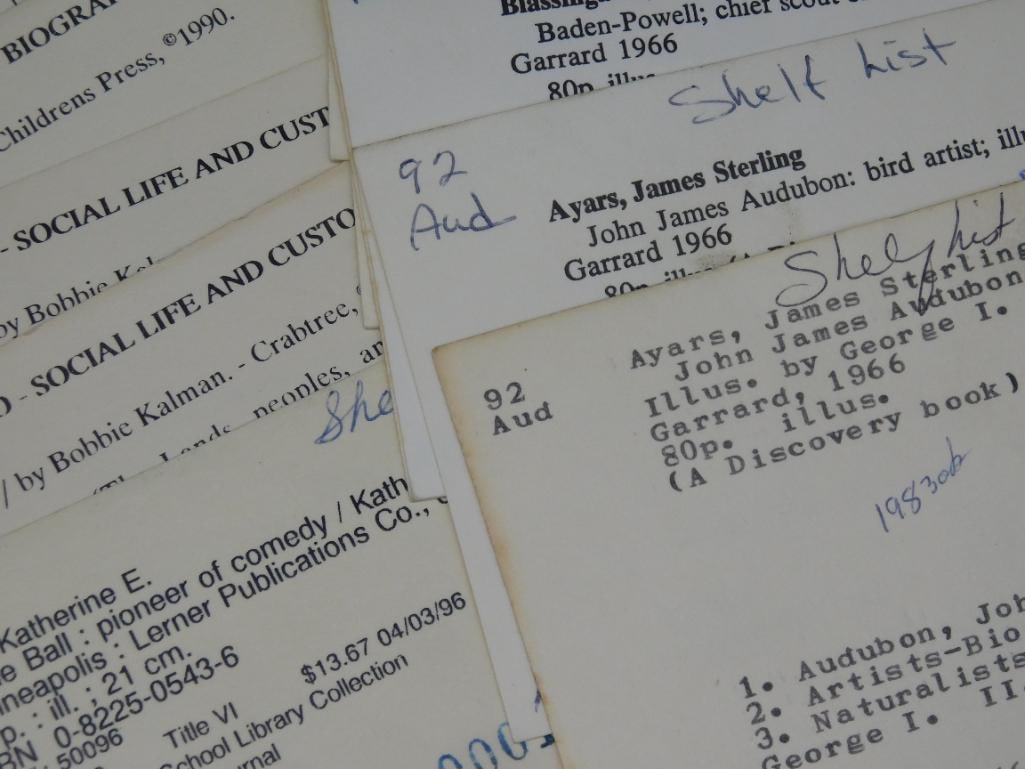 BIOGRA
Childrens Press, ©1990.
- SOCIAL LIFE AND CUST
by Bobbie
- SOCIAL LIFE AND CUSTO
/ by Bobbie Kalman. - Crabtree,
Lands, peoples, an
She
Katherine E.
e Ball : pioneer of comedy / Kath
nneapolis : Lerner Publications Co.,
p. : ill. ; 21 cm.
BN 0-8225-0543-6
50096
$13.67 04/03/96
Title VI
School Library Collection
urnal
Blassing
Baden-Powell; chief scout
Garrard 1966
80p illus
Shelf List
92
Aud
Ayars, James Sterling
John James Audubon: bird artist; illu
Garrard 1966
80p illus
Shelf list
92
Aud
Ayars, James Sterling
John James Audubon
Illus. by George I.
Garrard, 1966
80p. illus.
(A Discovery book)
1. Audubon, Joh
2. Artists-Bio
3. Naturalists
George I. II